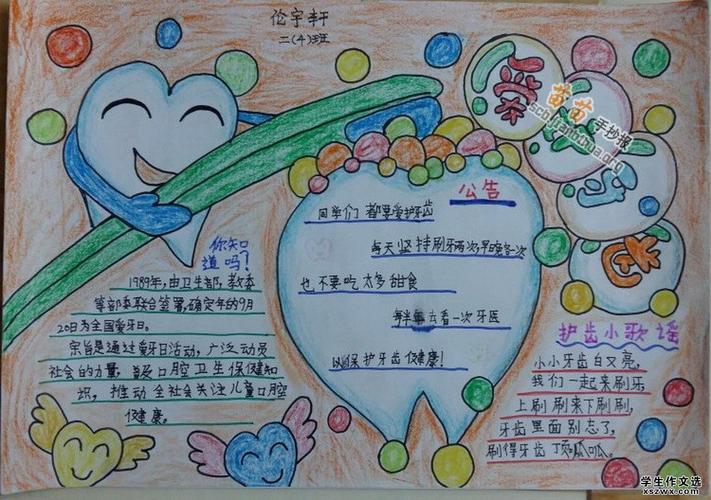 伦宇轩
二(4)班
爱
牙
护
齿
苗苗手抄报
你知
道吗?
1989年,由卫生部,教委
等部委联合签署,确定每年的9月
20日为全国爱牙日。
宗旨是通过爱牙日活动,广泛动员
社会的力量,普及口腔卫生保健知
识,推动全社会关注儿童口腔
健康。
公告
同学们 都要爱护牙齿
每天坚持刷牙两次早晚各一次
也不要吃太多甜食
每半年去看一次牙医
以保护牙齿健康!
护齿小歌谣
小小牙齿白又亮,
我们一起来刷牙,
上刷刷来下刷刷,
牙齿里面别忘了,
刷得牙齿顶呱呱。
学生作文选
xszwx.cn